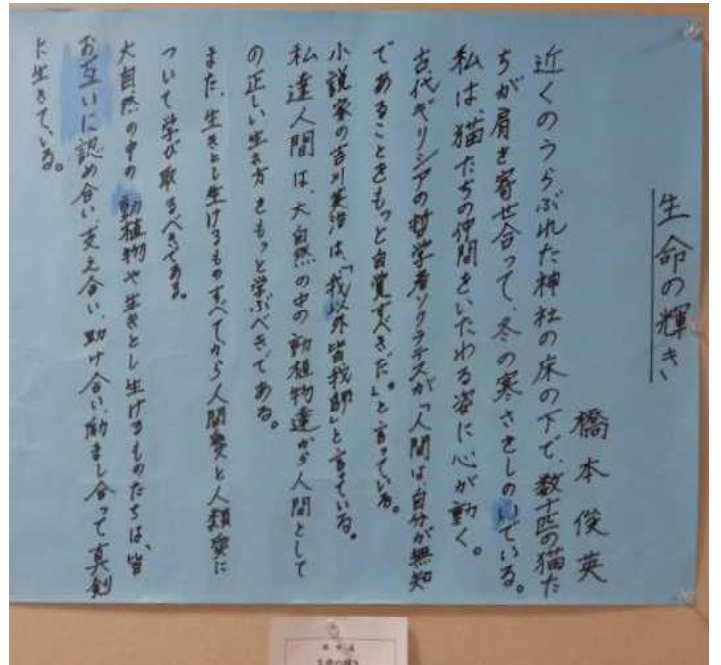 生命の輝き
橋本俊英
近くのうらぶれた神社の床の下で、数十匹の猫た
ちが肩を寄せ合って、冬の寒さをしのいでいる。
私は、猫たちの仲間をいたわる姿に心が動く。
古代ギリシアの哲学者ソクラテスが「人間は、自分が無知
であることをもっと自覚すべきだ。」と言っている。
小説家の吉川英治は、「我以外皆我師」と言っている。
私達人間は、大自然の中の動植物達から人間として
の正しい生き方をもっと学ぶべきである。
また、生きとし生けるものすべてから人間愛と人類愛に
ついて学び取るべきである。
大自然の中の動植物や生きとし生けるものたちは、皆
お互いに認め合い、支え合い、助け合い、励まし合って真剣
に生きている。
生命の輝き